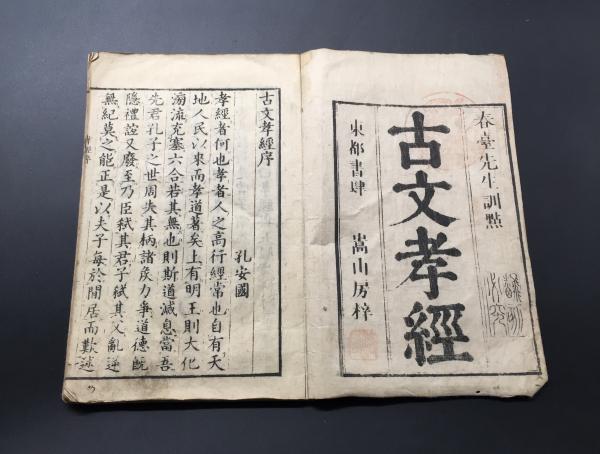 春臺先生訓點
古文孝經
東都書肆 嵩山房梓
古文孝經序
孔安國
孝經者何也孝者人之高行經常也自有天
地人民以來而孝道著矣上有明王則大化
滂流充塞六合若其無也則斯道滅息當吾
先君孔子之世周失其柄諸侯力爭道德既
隱禮誼又廢至乃臣弒其君子弒其父亂逆
無紀莫之能正是以夫子每於閒居而歎述